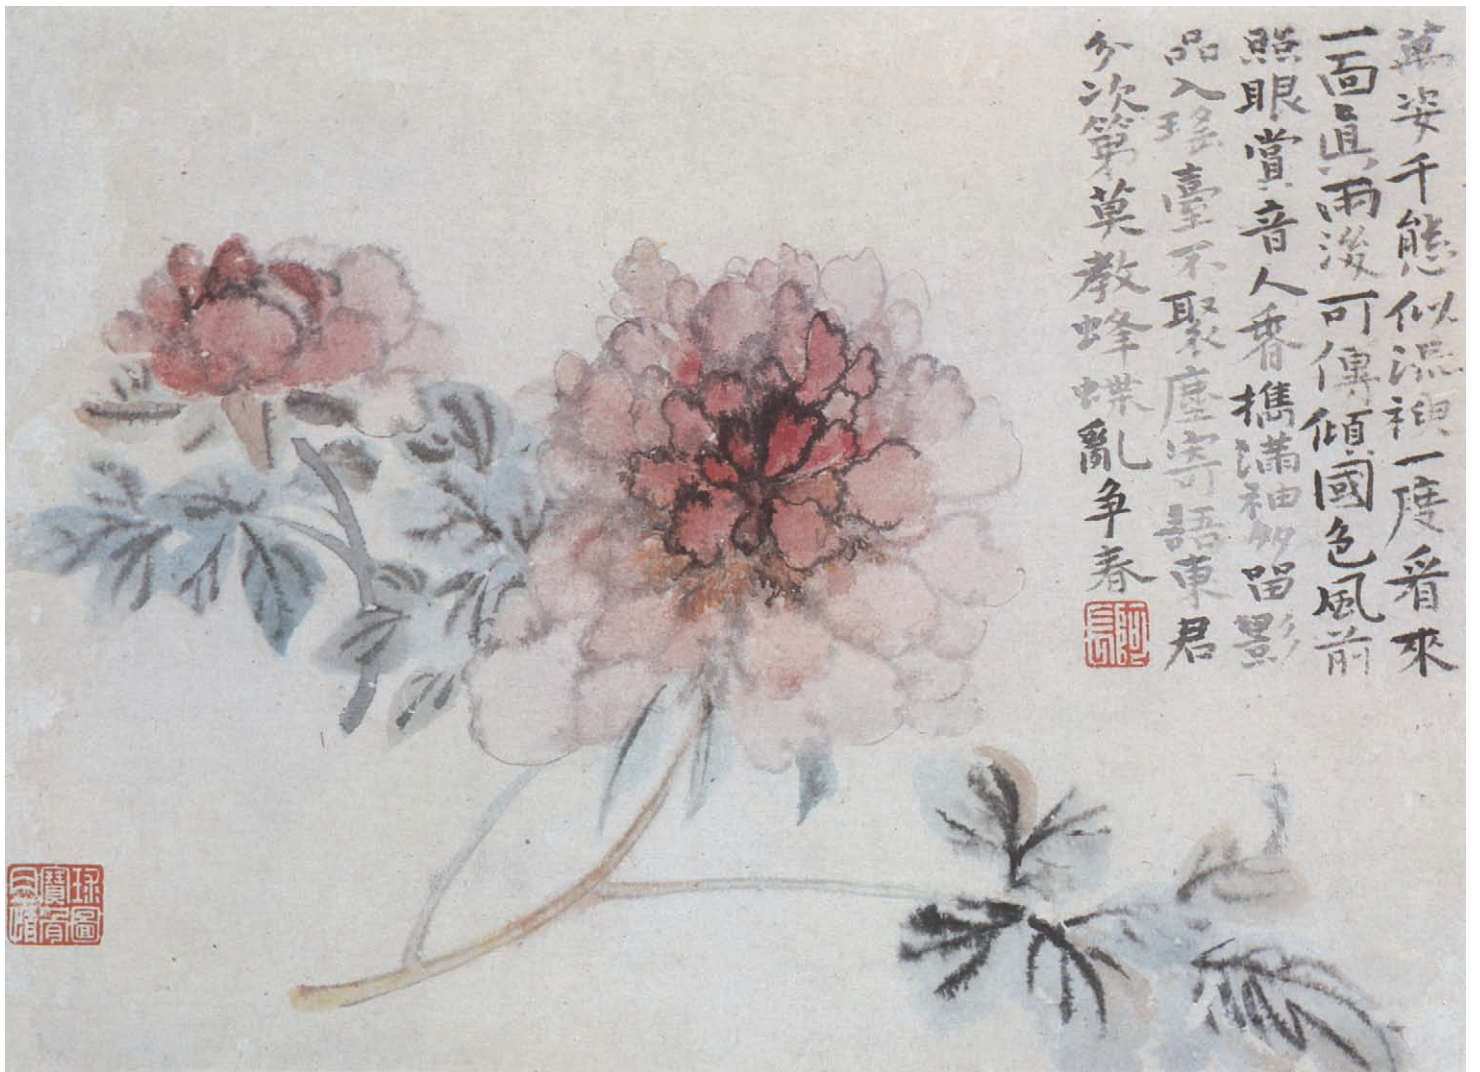 萬姿千態似流神一度看來
一面眞雨後可傳傾國色風前
照眼賞音人香攜滿袖多留影
品入瑤臺不聚塵寄語東君
分次第莫教蜂蝶亂爭春
阿長
球圖寶骨肉情